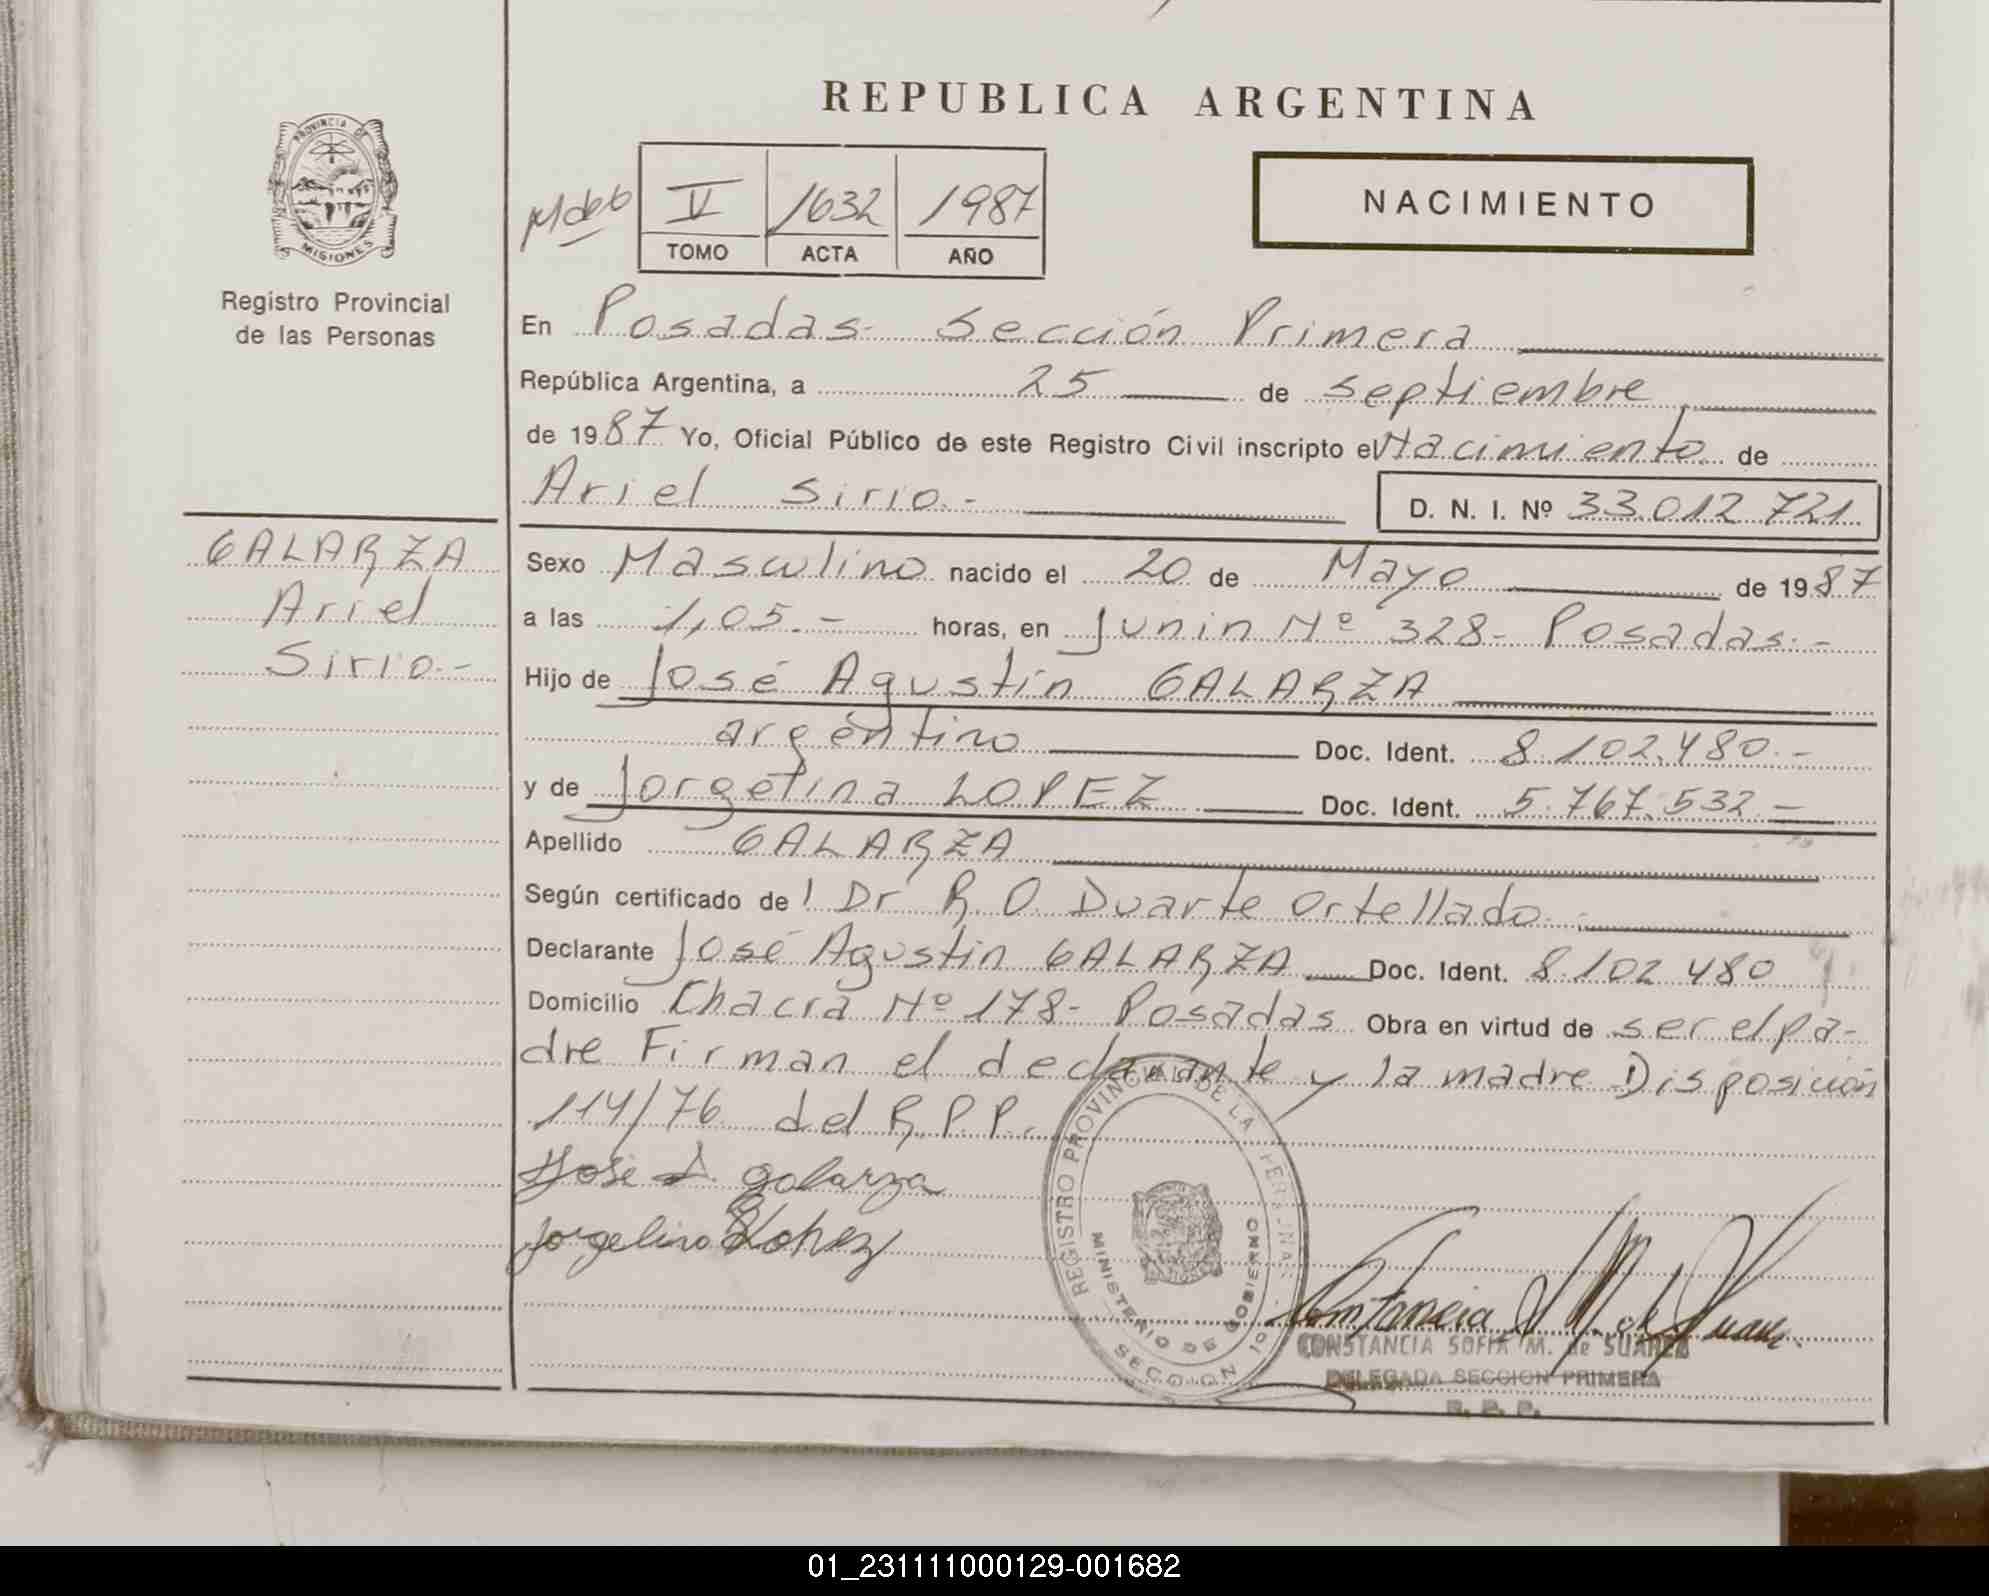 REPUBLICA ARGENTINA
PROVINCIA DE
MISIONES
Registro Provincial
de las Personas
NACIMIENTO
V 1632 1987
TOMO ACTA AÑO
En Posadas- Sección Primera
República Argentina, a 25 de septiembre
de 1987 Yo, Oficial Público de este Registro Civil inscripto el Nacimiento de
Ariel Sirio.-
D. N. I. Nº 33.012.721
GALARZA
Ariel
Sirio.-
Sexo Masculino nacido el 20 de Mayo de 1987
a las 1,05.- horas, en Junin Nº 328- Posadas.-
Hijo de José Agustín GALARZA
argentino Doc. Ident. 8.102.480.-
y de Jorgelina LOPEZ Doc. Ident. 5.767.532.-
Apellido GALARZA
Según certificado del Dr R. O. Duarte Ortellado
Declarante José Agustín GALARZA Doc. Ident. 8.102.480
Domicilio Chacra Nº 178- Posadas Obra en virtud de ser el pa-
dre Firman el declarante y la madre Disposición
114/76 del R.P.P.
José A. galarza
Jorgelina Lopez
REGISTRO PROVINCIAL DE LAS PERSONAS
MINISTERIO DE GOBIERNO
SECCION 1º
CONSTANCIA SOFIA M. de SUAREZ
DELEGADA SECCION PRIMERA
R. P. P.
01_231111000129-001682